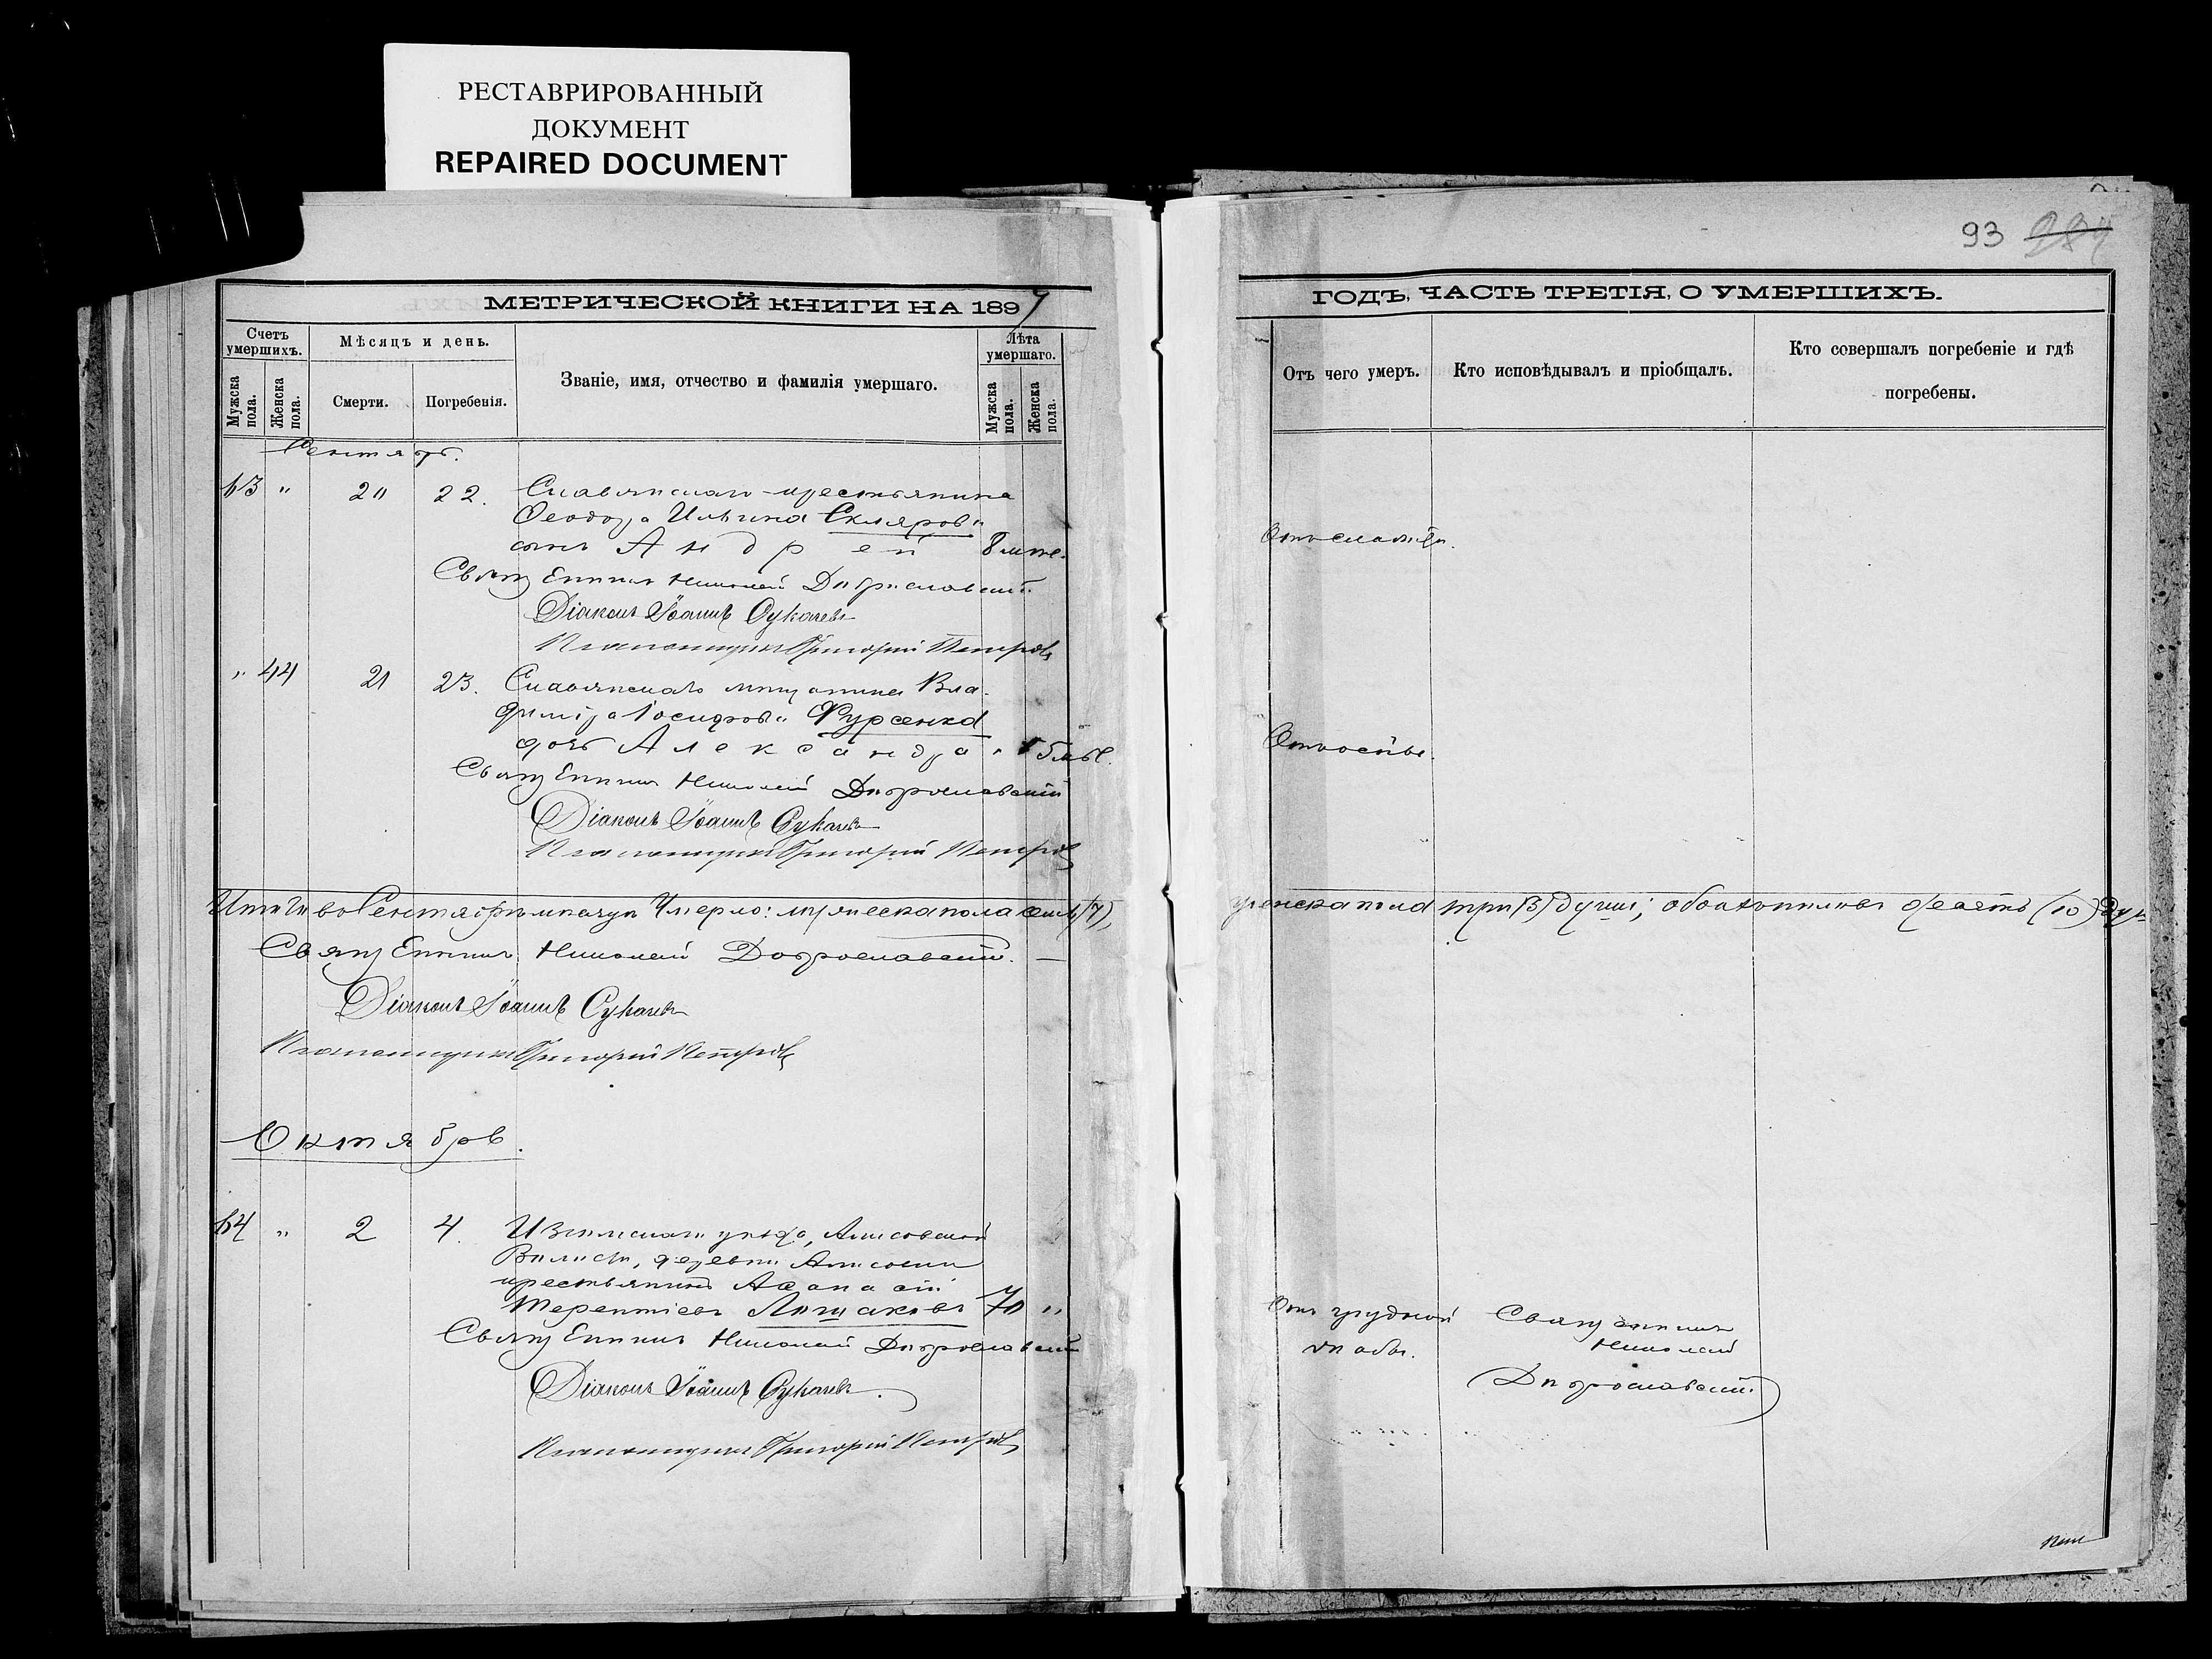 РЕСТАВРИРОВАННЫЙ
ДОКУМЕНТ
REPAIRED DOCUMENT
93 237
МЕТРИЧЕСКОЙ КНИГИ НА 1897
ГОДЪ, ЧАСТЬ ТРЕТІЯ, О УМЕРШИХЪ.
Счетъ умершихъ.
Мужска пола.
Женска пола.
Мѣсяцъ и день.
Смерти.
Погребенія.
Званіе, имя, отчество и фамилія умершаго.
Лѣта умершаго.
Мужска пола.
Женска пола.
Отъ чего умеръ.
Кто исповѣдывалъ и пріобщалъ.
Кто совершалъ погребеніе и гдѣ
погребены.
Сентябрь.
63 " 20 22. Славянскаго крестьянина
Ѳеодора Ильина Склярова
сынъ Андрей 8 мѣс.
Отъ слабости.
Священникъ Николай Доброславскій
Діаконъ Іоаннъ Сукачевъ
Псаломщикъ Григорій Петровъ
" 44 21 23. Славянскаго мѣщанина Вла-
диміра Іосифова Фурсенко
дочь Александра " 5 мѣс.
Отъ оспы.
Священникъ Николай Доброславскій
Діаконъ Іоаннъ Сукачевъ
Псаломщикъ Григорій Петровъ
Итого во Сентябрѣ мѣсяцѣ умерло: мужеска пола семь (7), женска пола три (3) души; обоихъ половъ десять (10) душ
Священникъ Николай Доброславскій.
Діаконъ Іоаннъ Сукачевъ
Псаломщикъ Григорій Петровъ
Октябрь.
64 " 2 4. Изюмскаго уѣзда,
Волости, деревни
крестьянинъ Аѳанасій
Терентіевъ Лощаковъ 70 "
Отъ грудной
жабы.
Священникъ
Николай
Доброславскій
Священникъ Николай Доброславскій
Діаконъ Іоаннъ Сукачевъ.
Псаломщикъ Григорій Петровъ